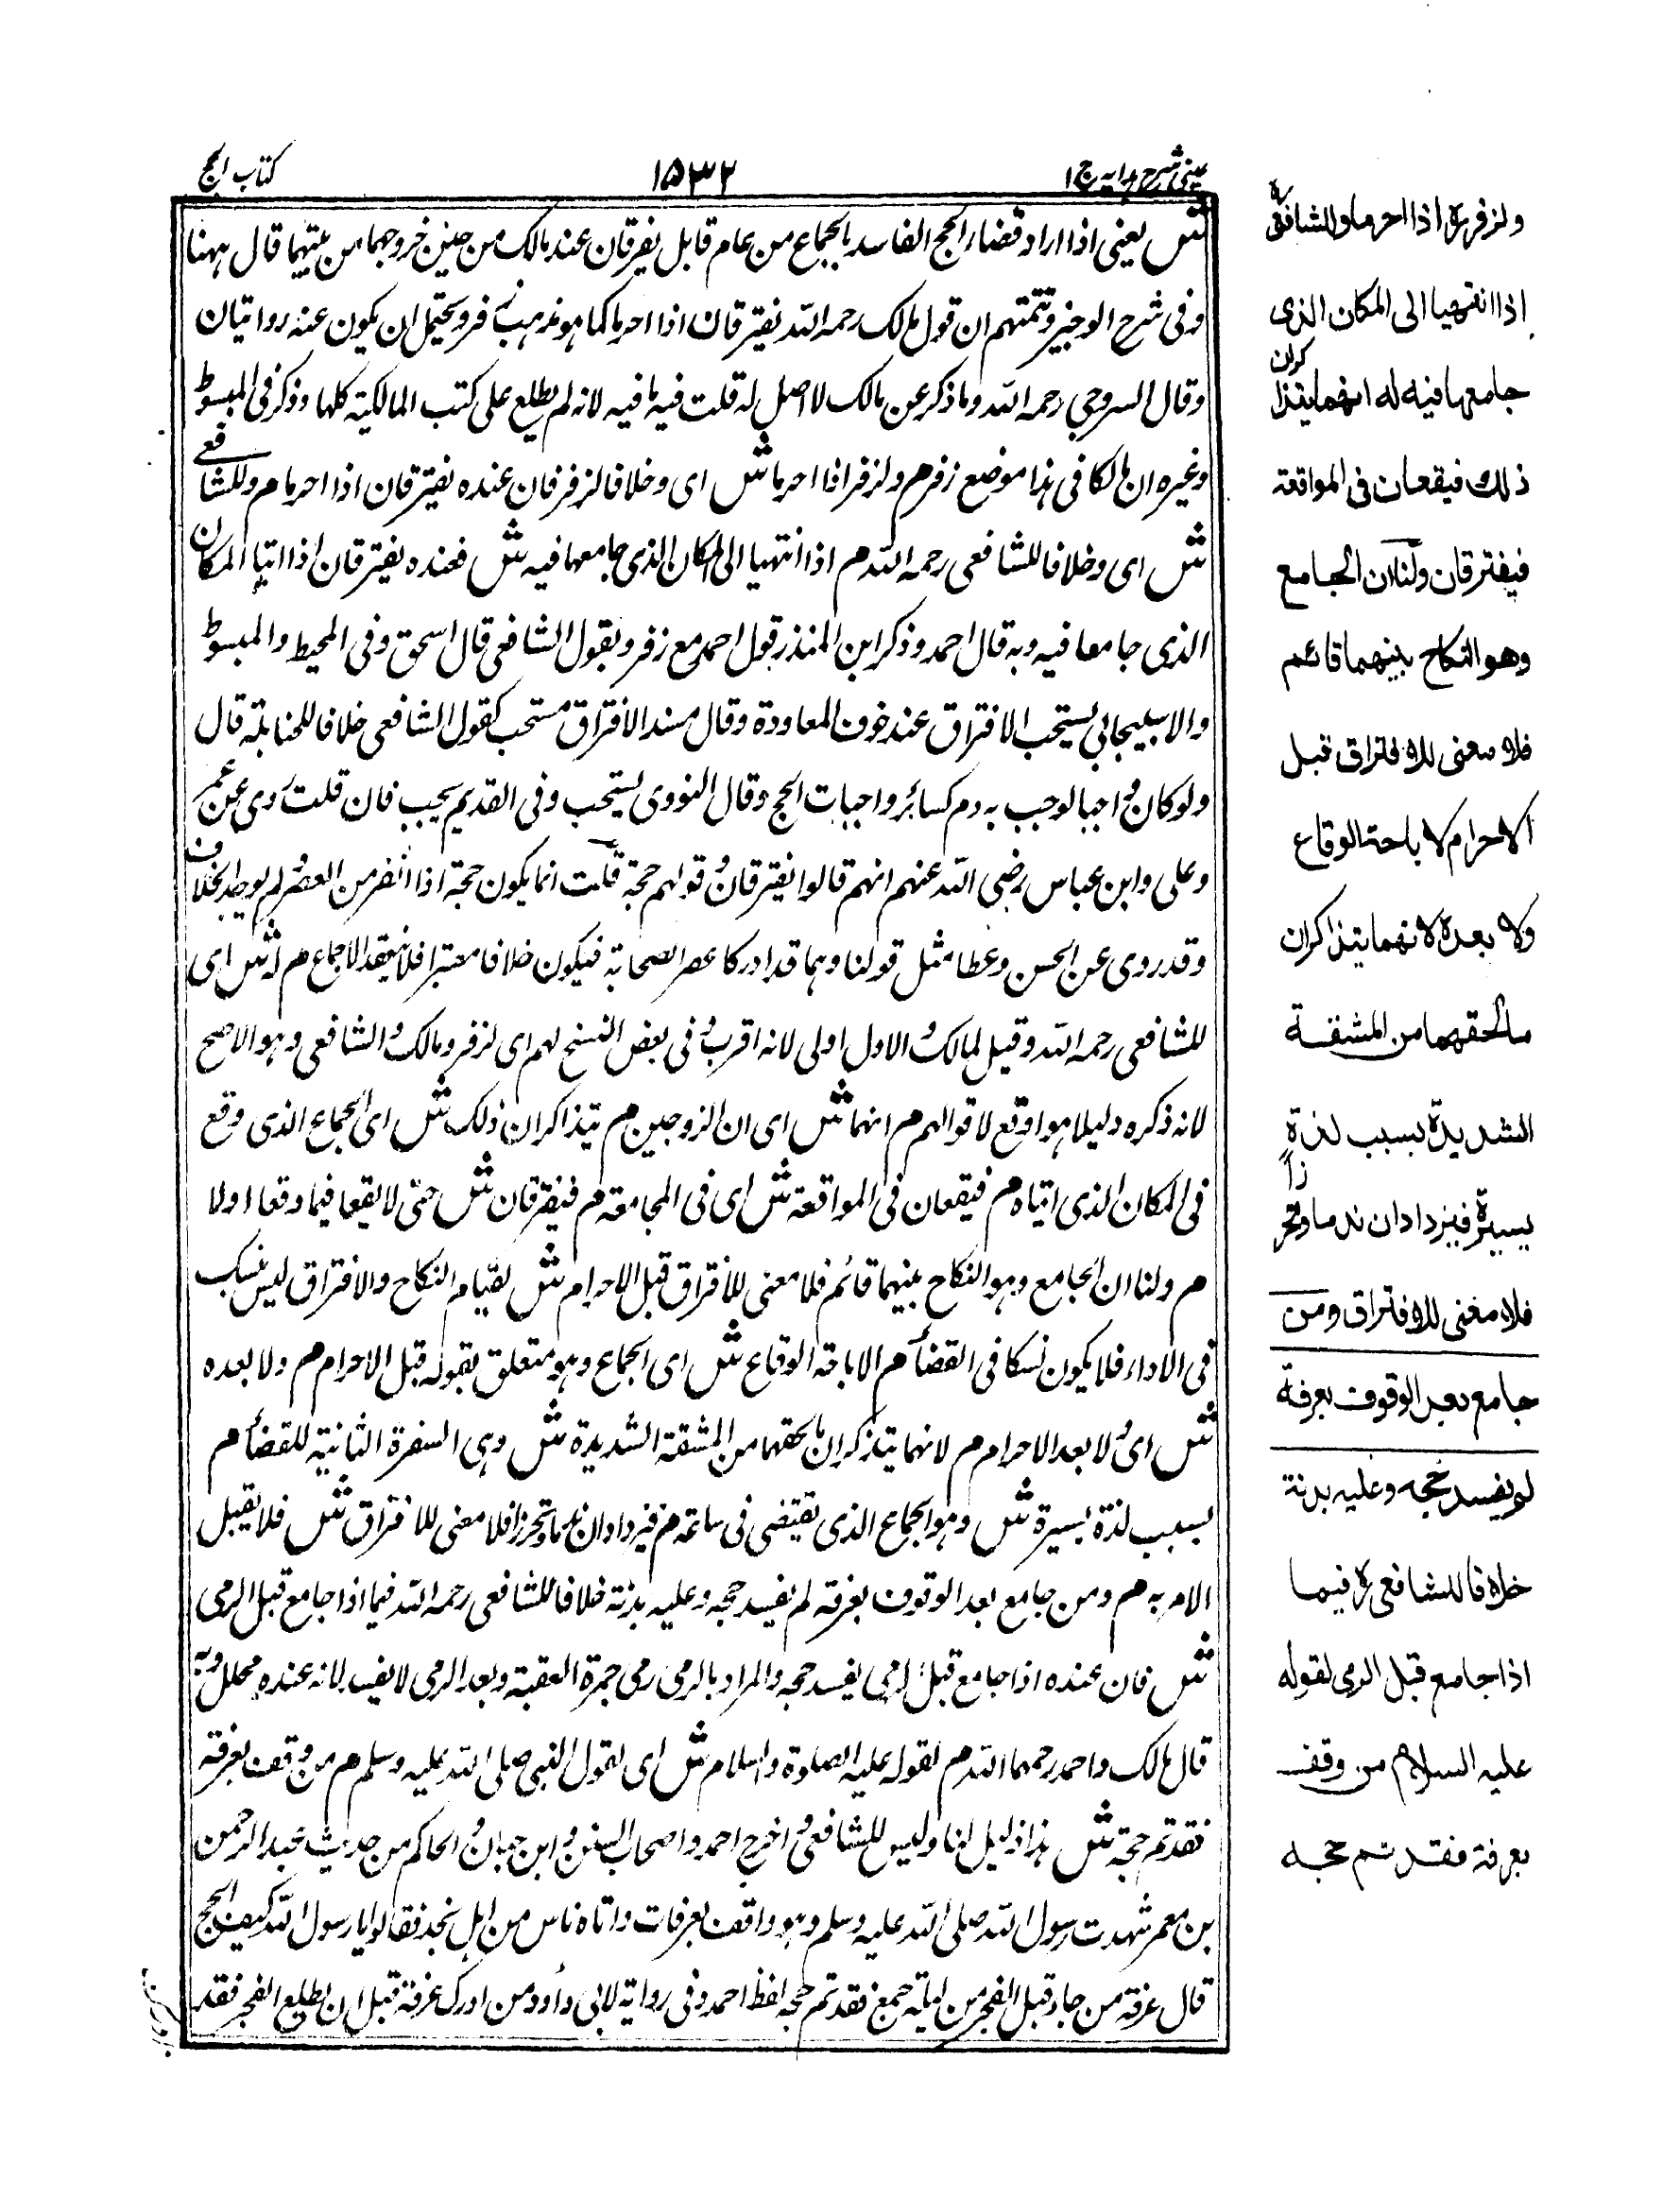 عينى شرح هدايه ج ١
١٥٣٢
كتاب الحج
ش يعنى اذا اراد قضاء الحج الفاسد بالجماع من عام قابل يفترقان عند مالك من حين خروجهما من بيتهما قال ههنا
وفى شرح الوجيز وتتمتهم ان قول مالك رحمه الله يفترقان اذا احرما كما هو مذهب زفر ويحتمل ان يكون عنه روايتان
وقال السروجى رحمه الله وما ذكر عن مالك لا اصل له قلت فيه ما فيه لانه لم يطلع على كتب المالكية كلها وذكر فى المبسوط
وغيره ان مالكا فى هذا موضع زفر م ولزفر اذا احرما ش اى وخلافا لزفر فان عنده يفترقان اذا احرما م وللشافعى
ش اى وخلافا للشافعى رحمه الله م اذا انتهيا الى المكان الذى جامعها فيه ش فعنده يفترقان اذا اتيا المكان
الذى جامعا فيه وبه قال احمد وذكر ابن المنذر قول احمد مع زفر وبقول الشافعى قال اسحق وفى المحيط والمبسوط
والاسبيجابى يستحب الافتراق عند خوف المعاودة وقال سند الافتراق مستحب كقول الشافعى خلافا للحنابلة قال
ولو كان واجبا لوجب به دم كسائر واجبات الحج وقال النووى يستحب وفى القديم يجب فان قلت روى عن عمر
وعلى وابن عباس رضى الله عنهم انهم قالوا يفترقان وقولهم حجة قلت انما يكون حجة اذا انقرض العصر ولم يوجد الخلاف
وقد روى عن الحسن وعطا مثل قولنا وهما قد ادركا عصر الصحابة فيكون خلافا معتبرا فلا ينعقد الاجماع م له ش اى
للشافعى رحمه الله وقيل لمالك والاول اولى لانه اقرب وفى بعض النسخ لهم اى لزفر ومالك والشافعى وهو الاصح
لانه ذكره دليلا هو اوقع لاقوالهم م انهما ش اى ان الزوجين م يتذاكران ذلك ش اى الجماع الذى وقع
فى المكان الذى اتياه م فيقعان فى المواقعة ش اى فى المجامعة م فيفترقان ش حتى لا يقعا فيما وقعا اولا
م ولنا ان الجامع وهو النكاح بينهما قائم فلا معنى للافتراق قبل الاحرام ش لقيام النكاح والافتراق ليس بنسك
فى الاداء فلا يكون نسكا فى القضاء م لاباحة الوقاع ش اى الجماع وهو متعلق بقوله قبل الاحرام م ولا بعده
ش اى ولا بعد الاحرام م لانهما يتذكران ما لحقهما من المشقة الشديدة ش وهى السفرة الثانية للقضاء م
بسبب لذة يسيرة ش وهو الجماع الذى يقتضى فى ساعة م فيزدادان ندما وتحرزا فلا معنى للافتراق ش فلا يقبل
الامر به م ومن جامع بعد الوقوف بعرفة لم يفسد حجه وعليه بدنة خلافا للشافعى رحمه الله فيما اذا جامع قبل الرمى
ش فان عنده اذا جامع قبل الرمى يفسد حجه والمراد بالرمى رمى جمرة العقبة وبعد الرمى لا يفسد لانه عنده محلل وبه
قال مالك واحمد رحمهما الله م لقوله عليه الصلوة والسلام ش اى لقول النبى صلى الله عليه وسلم م من وقف بعرفة
فقد تم حجة ش هذا دليل لنا وليس للشافعى واخرج احمد واصحاب السنن وابن حبان والحاكم من حديث عبد الرحمن
بن معمر شهدت رسول الله صلى الله عليه وسلم وهو واقف بعرفات واتاه ناس من اهل نجد فقالوا يا رسول الله كيف الحج
قال عرفة من جاء قبل الفجر من ليلة جمع فقد تم حجه لفظ احمد وفى رواية لابى داود من ادرك عرفة قبل ان يطلع الفجر فقد
ولزفر ره اذا احرما وللشافعى ره
اذا انتهيا الى المكان الذى
جامعها فيه له انهما يتذاكران
ذلك فيقعان فى المواقعة
فيفترقان ولنا ان الجامع
وهو النكاح بينهما قائم
فلا معنى للافتراق قبل
الاحرام لاباحة الوقاع
ولا بعده لانهما يتذاكران
ما لحقهما من المشقة
الشديدة بسبب لذة
يسيرة فيزدادان ندما وتحرزا
فلا معنى للافتراق ومن
جامع بعد الوقوف بعرفة
لم يفسد حجه وعليه بدنة
خلافا للشافعى ره فيما
اذا جامع قبل الرمى لقوله
عليه السلام من وقف
بعرفة فقد تم حجه